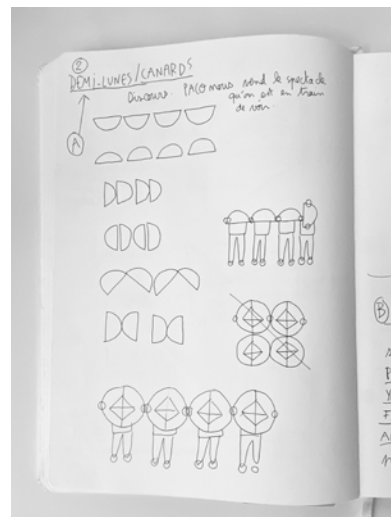 ②
DEMI-LUNES/CANARDS
Discours. PACO nous vend le spectacle
qu'on est en train
de voir.
A
B
P
Y
F
A